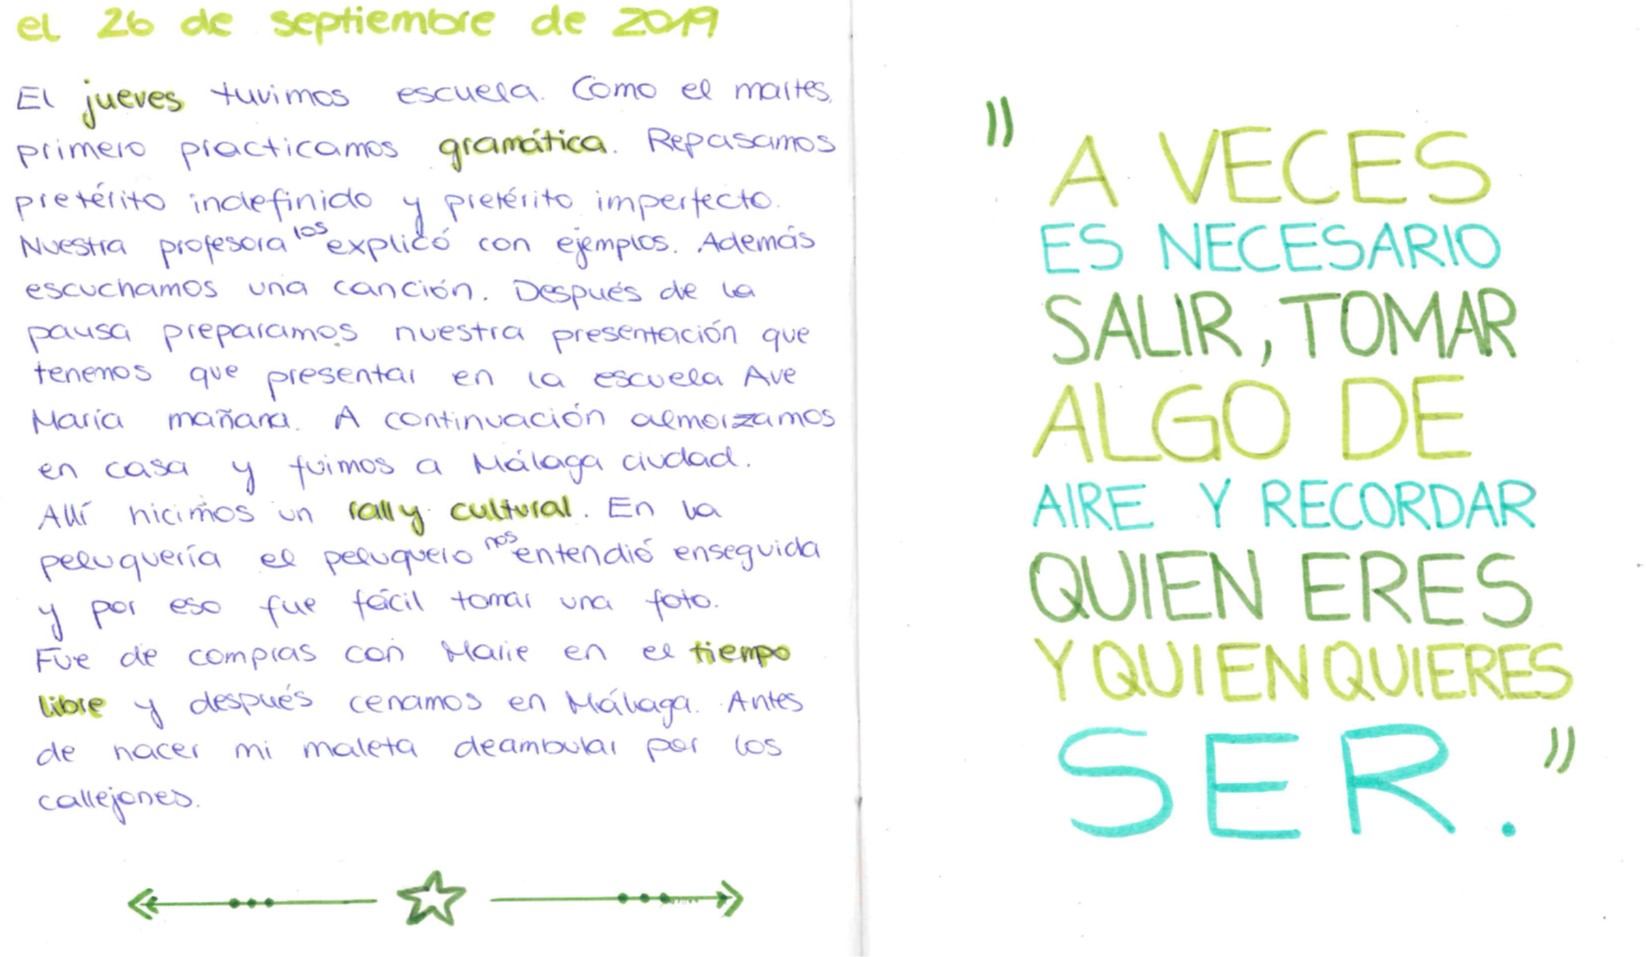 el 26 de septiembre de 2019
El jueves tuvimos escuela. Como el martes,
primero practicamos gramática. Repasamos
pretérito indefinido y pretérito imperfecto.
Nuestra profesora los explicó con ejemplos. Además
escuchamos una canción. Después de la
pausa preparamos nuestra presentación que
tenemos que presentar en la escuela Ave
María mañana. A continuación almorzamos
en casa y fuimos a Málaga ciudad.
Allí hicimos un rally cultural. En la
peluquería el peluquero nos entendió enseguida
y por eso fue fácil tomar una foto.
Fue de compras con Marie en el tiempo
libre y después cenamos en Málaga. Antes
de hacer mi maleta deambular por los
callejones.
"A VECES
ES NECESARIO
SALIR, TOMAR
ALGO DE
AIRE Y RECORDAR
QUIEN ERES
Y QUIEN QUIERES
SER."